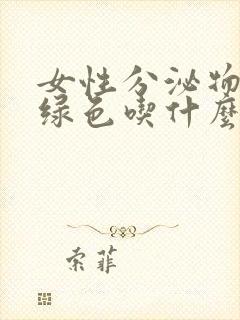 女性分泌物
绿色喫什麽
索菲